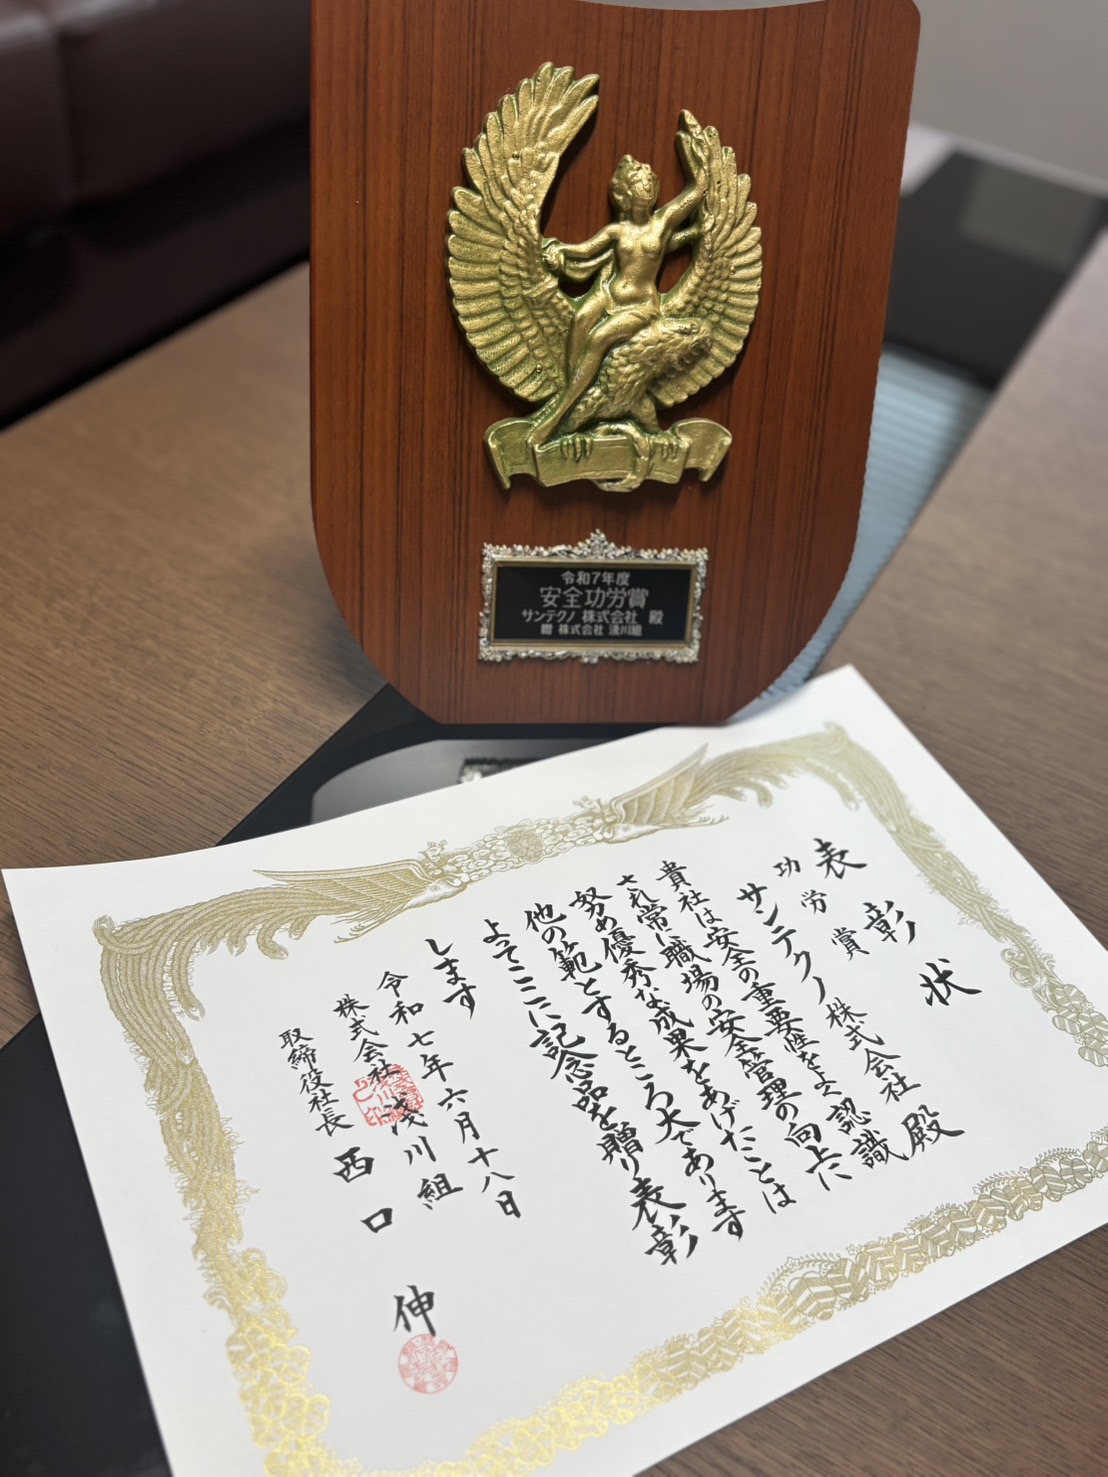 令和7年度
安全功労賞
サンテクノ 株式会社 殿
贈 株式会社 淺川組
表彰状
功労賞
サンテクノ株式会社殿
貴社は安全の重要性をよく認識
され常に職場の安全管理の向上に
努め優秀な成果をあげたことは
他の範とするところ大であります
よってここに記念品を贈り表彰
します
令和七年六月十八日
株式会社 淺川組
取締役社長 西口 伸